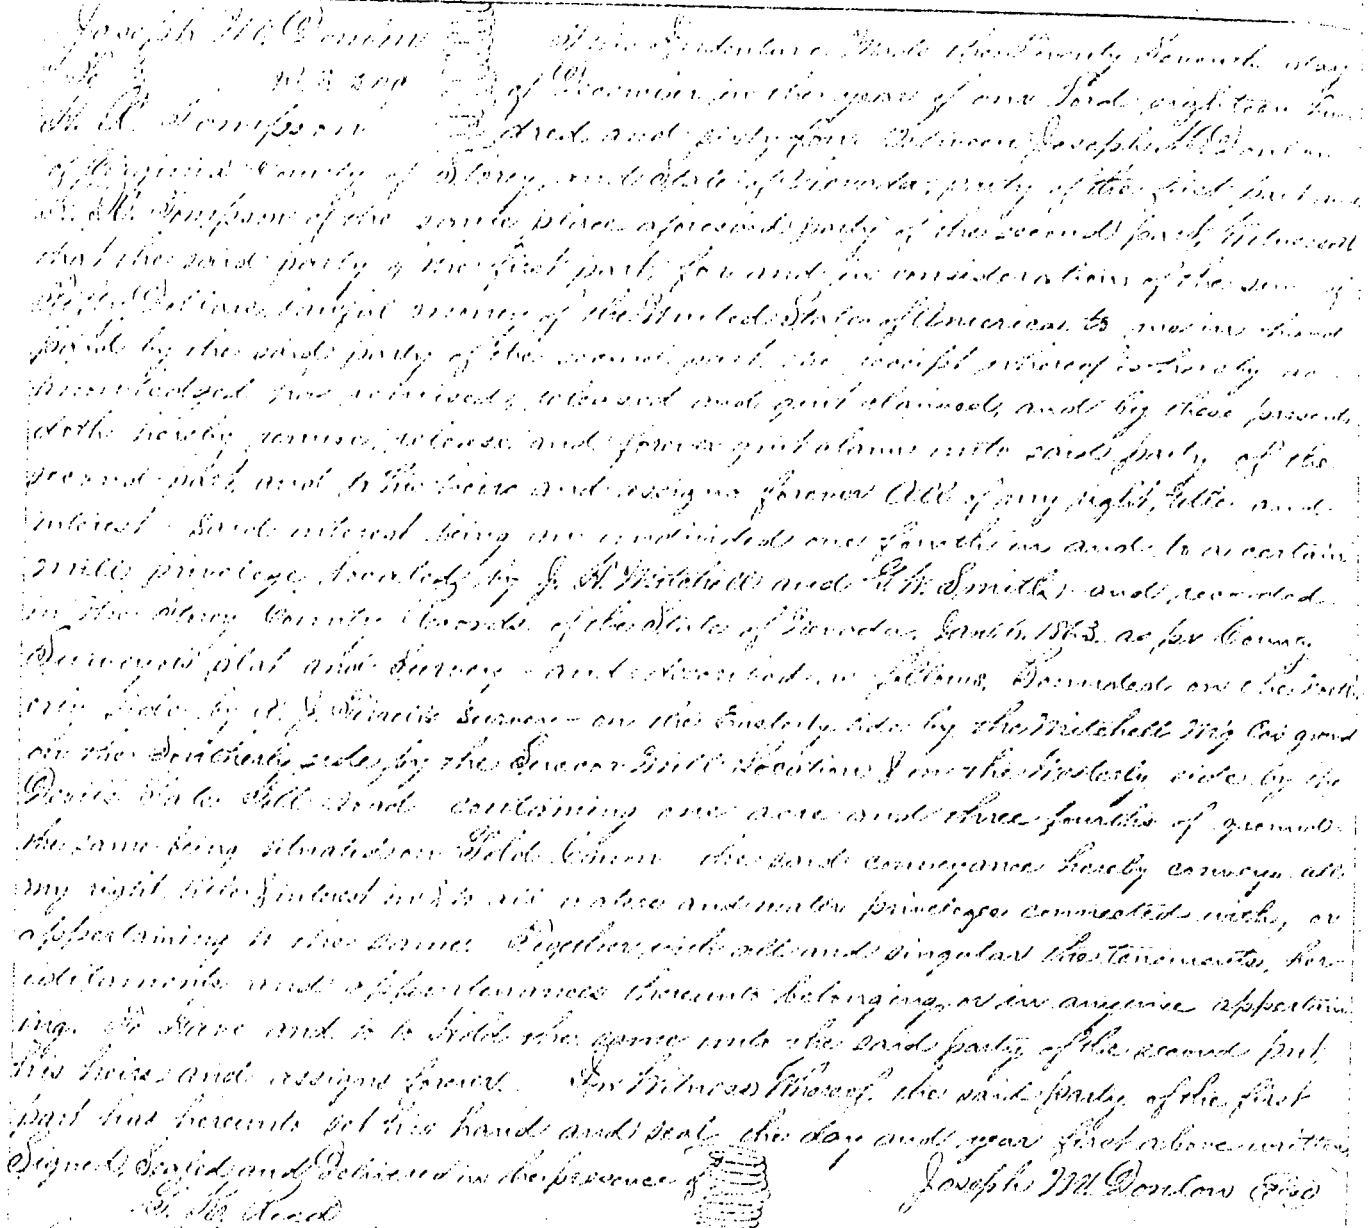 Joseph McDonlon
To
M. A. Tompson
This Indenture Made the Twenty Seventh day
of December in the year of our Lord eighteen hun
dred and sixty four Between Joseph McDonlon
of Virginia County of Storey, and State of Nevada, party of the first part and
Tompson of the same place aforesaid party of the second part, Witnesseth
that the said party of the first part, for and in consideration of the sum of
Dollars, lawful money of the United States of America to me in hand
paid by the said party of the second part the receipt whereof is hereby ac
knowledged has remised, released and quit claimed, and by these presents
doth hereby remise, release and forever quit claim unto said party of the
second part, and to his heirs and assigns forever All of my right, title and
interest Said interest being an undivided one fourth in and to a certain
mill privilege, located by J. H. Mitchell and G. W. Smith, and recorded
in the Storey County Records of the State of Nevada, 1863 as per County
Surveyors plat and Survey and described as follows, Bounded on the North
erly side by Survey on the Easterly side by the Mitchell M'g Co's ground
on the Southerly side by the Mill Location & on the Westerly side by the
Devils Gate Toll road containing one acre and three fourths of ground
the same being situated on Gold Canon the said conveyance hereby conveys all
my right title & interest in & to all water and water privileges connected with, or
appertaining to the same. Together with all and singular the tenements, her
editaments and appurtenances thereunto belonging, or in anywise appertain
ing. To Have and to to Hold the same unto the said party of the second part,
his heirs and assigns forever. In Witness Whereof, the said party of the first
part has hereunto set his hand and seal, the day and year first above written
Signed, Sealed and Delivered in the presence of
Joseph McDonlon Seal